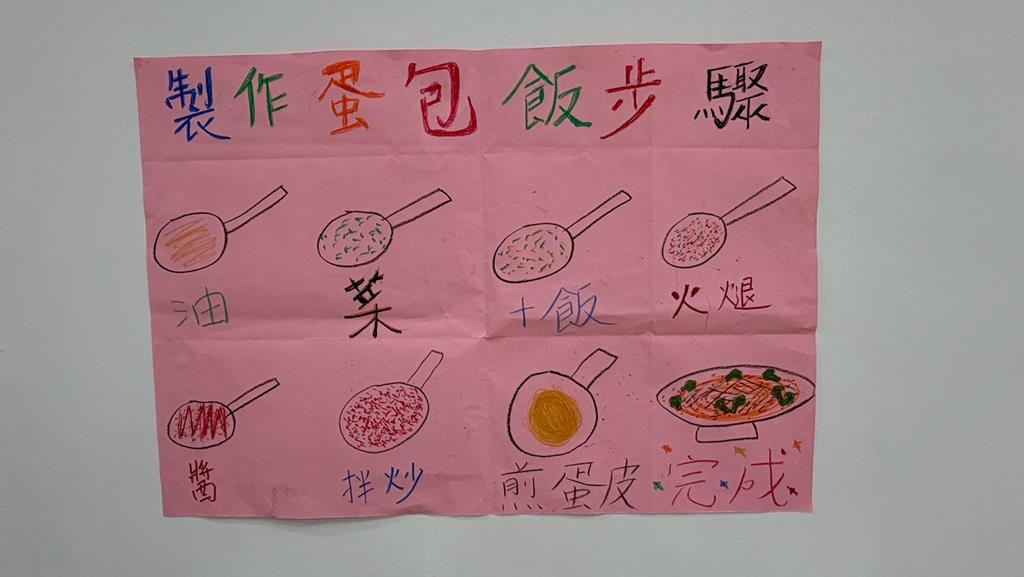 製作蛋包飯步驟
油 菜 +飯 火腿
醬 拌炒 煎蛋皮 完成